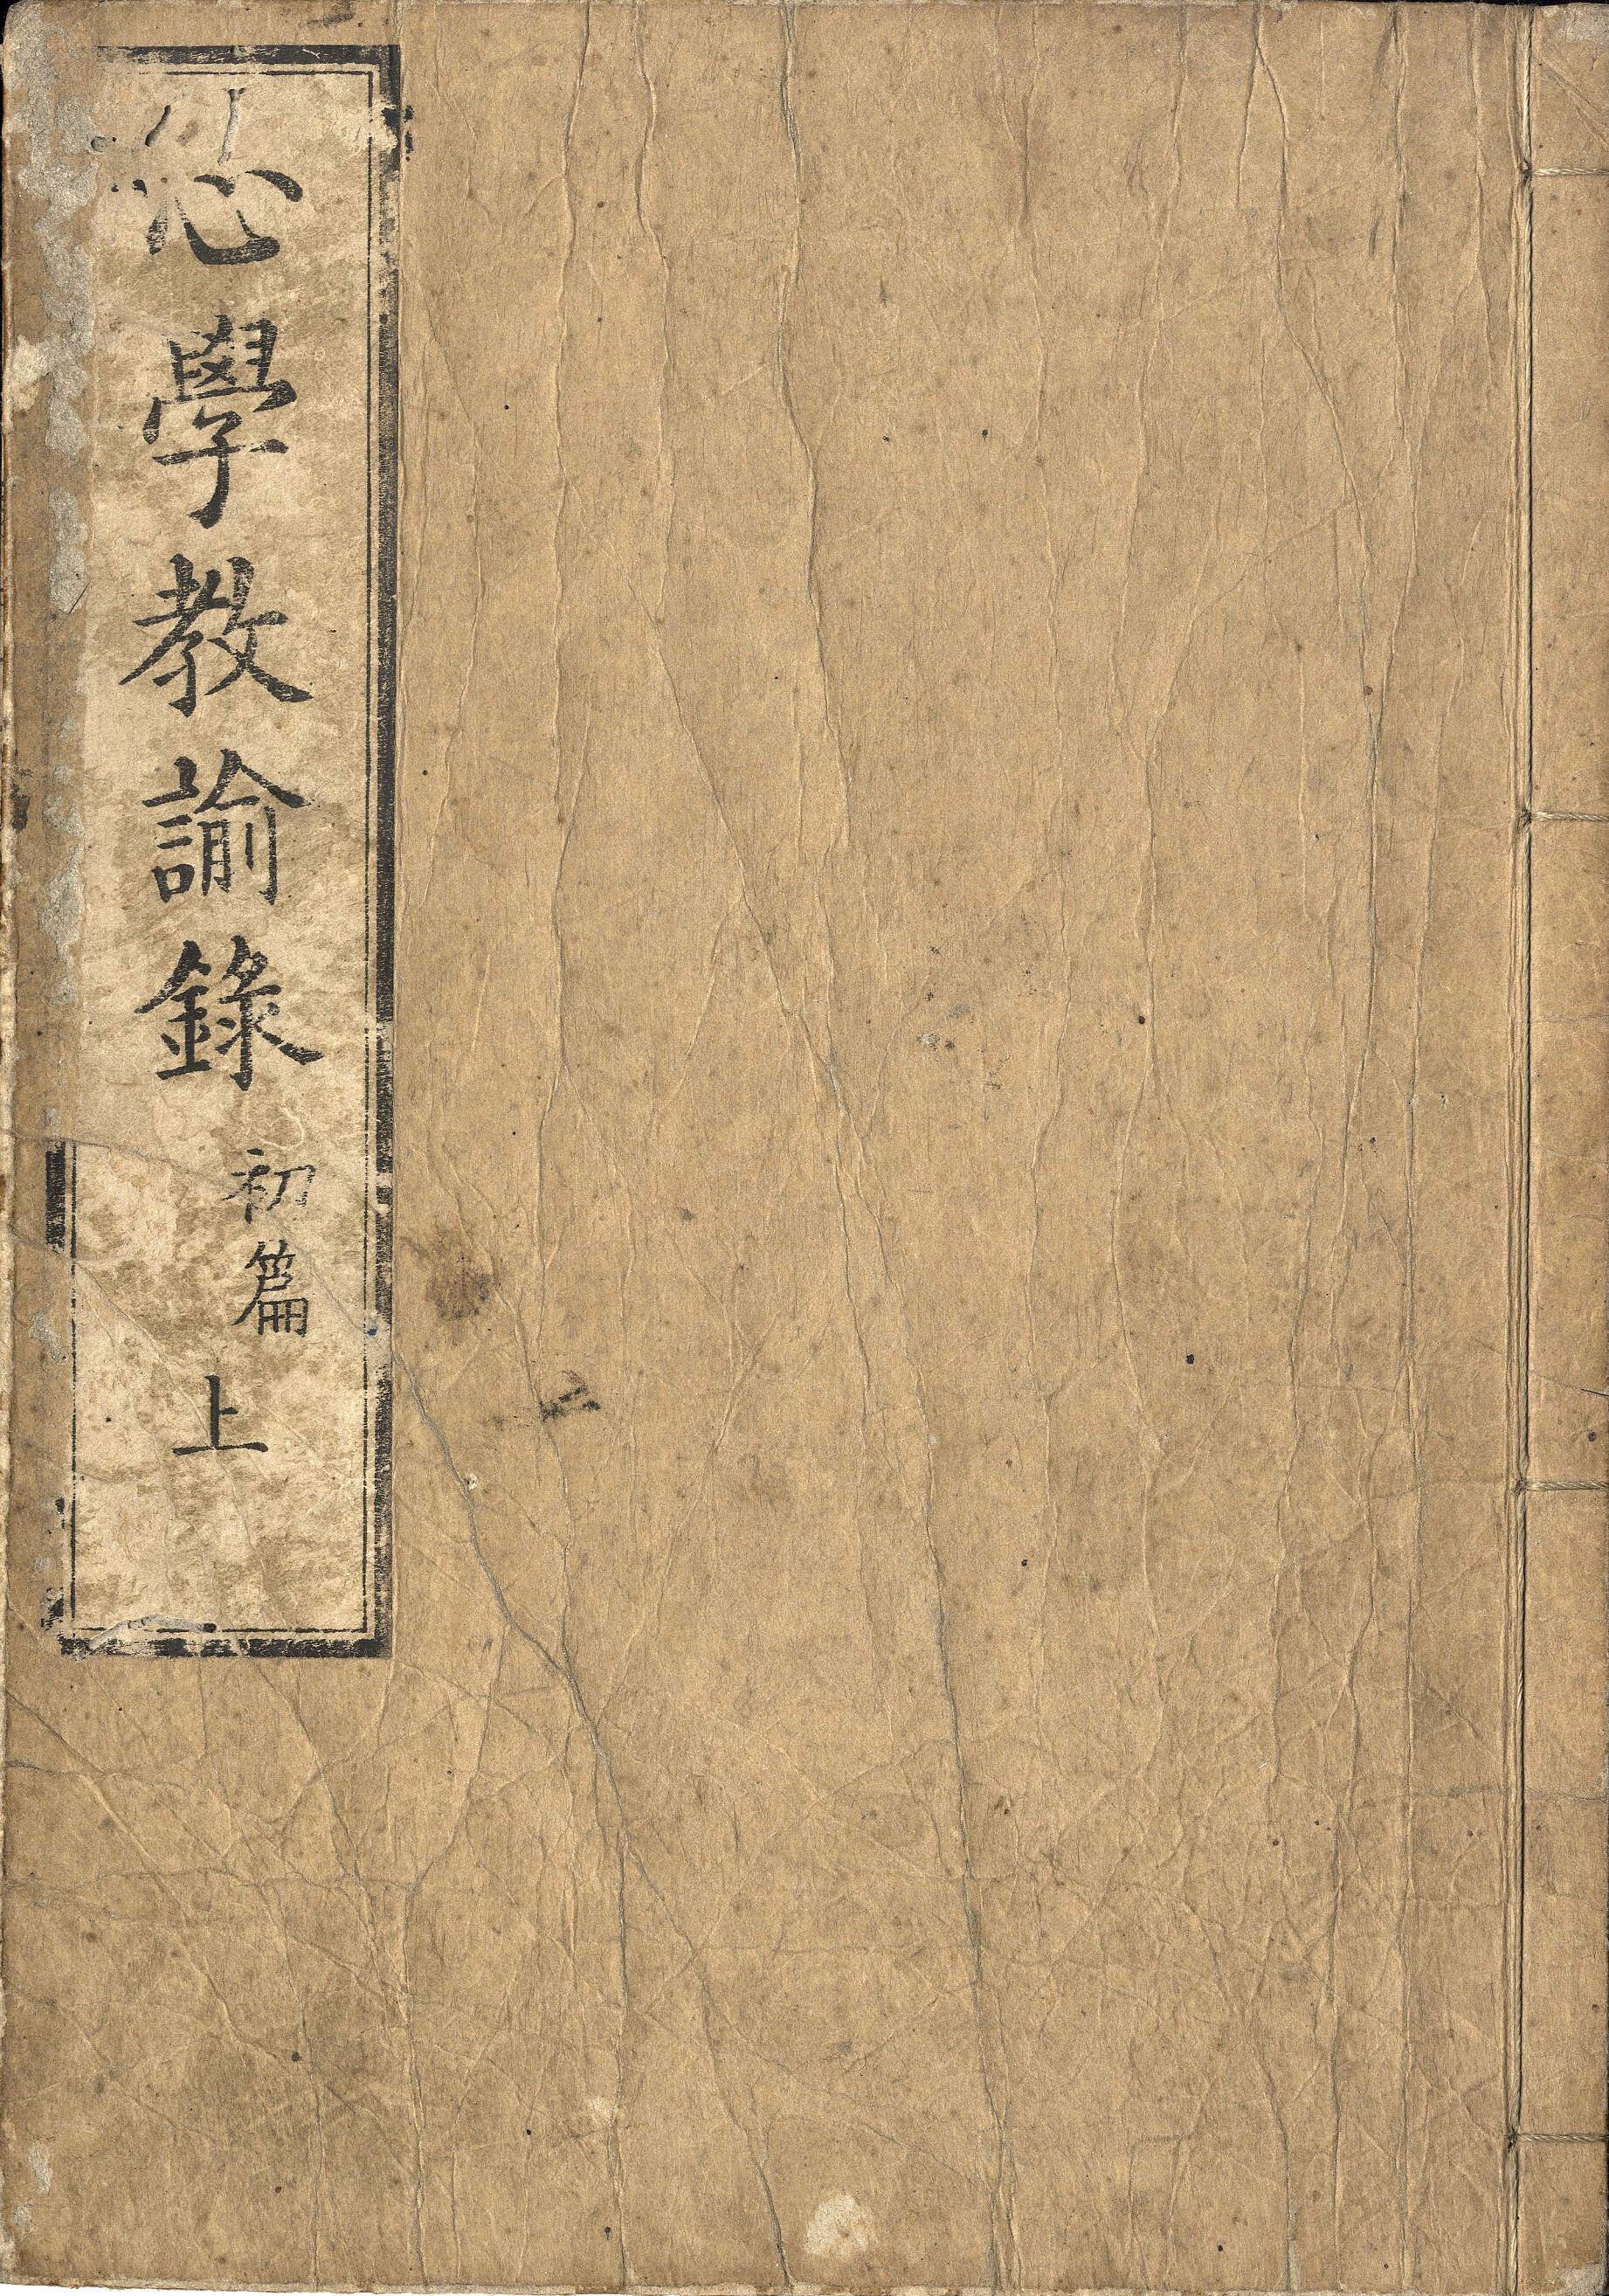 心學教諭錄
初篇
上